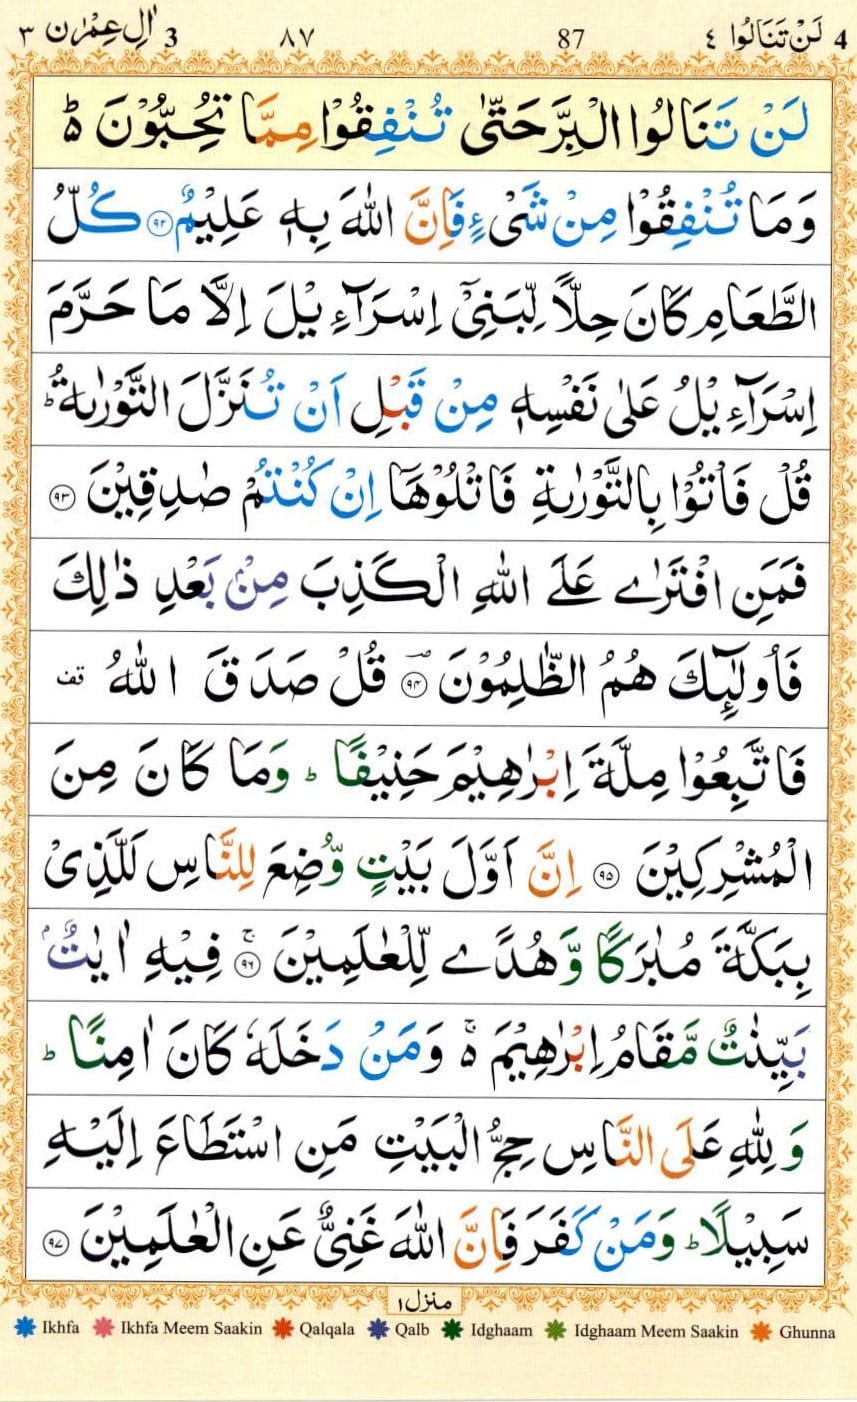 4 لَنْ تَنَالُوا ٤ 87 ٨٧ 3 اٰلِ عِمْرٰن ٣
لَنْ تَنَالُوا الْبِرَّ حَتّٰى تُنْفِقُوْا مِمَّا تُحِبُّوْنَ ؕ۬
وَمَا تُنْفِقُوْا مِنْ شَیْءٍ فَاِنَّ اللّٰهَ بِهٖ عَلِیْمٌ ﴿۹۲﴾ كُلُّ
الطَّعَامِ كَانَ حِلًّا لِّبَنِیْۤ اِسْرَآءِیْلَ اِلَّا مَا حَرَّمَ
اِسْرَآءِیْلُ عَلٰى نَفْسِهٖ مِنْ قَبْلِ اَنْ تُنَزَّلَ التَّوْرٰىةُ ؕ
قُلْ فَاْتُوْا بِالتَّوْرٰىةِ فَاتْلُوْهَاۤ اِنْ كُنْتُمْ صٰدِقِیْنَ ﴿۹۳﴾
فَمَنِ افْتَرٰى عَلَى اللّٰهِ الْكَذِبَ مِنْۢ بَعْدِ ذٰلِكَ
فَاُولٰٓىِٕكَ هُمُ الظّٰلِمُوْنَ ﴿۹۴﴾ؔ قُلْ صَدَقَ اللّٰهُ قف
فَاتَّبِعُوْا مِلَّةَ اِبْرٰهِیْمَ حَنِیْفًا ؕ وَمَا كَانَ مِنَ
الْمُشْرِكِیْنَ ﴿۹۵﴾ اِنَّ اَوَّلَ بَیْتٍ وُّضِعَ لِلنَّاسِ لَلَّذِیْ
بِبَكَّةَ مُبٰرَكًا وَّهُدًى لِّلْعٰلَمِیْنَ ﴿۹۶﴾ۚ فِیْهِ اٰیٰتٌۢ
بَیِّنٰتٌ مَّقَامُ اِبْرٰهِیْمَ ۚ۬ وَمَنْ دَخَلَهٗ كَانَ اٰمِنًا ؕ
وَلِلّٰهِ عَلَى النَّاسِ حِجُّ الْبَیْتِ مَنِ اسْتَطَاعَ اِلَیْهِ
سَبِیْلًا ؕ وَمَنْ كَفَرَ فَاِنَّ اللّٰهَ غَنِیٌّ عَنِ الْعٰلَمِیْنَ ﴿۹۷﴾
منزل ۱
Ikhfa Ikhfa Meem Saakin Qalqala Qalb Idghaam Idghaam Meem Saakin Ghunna